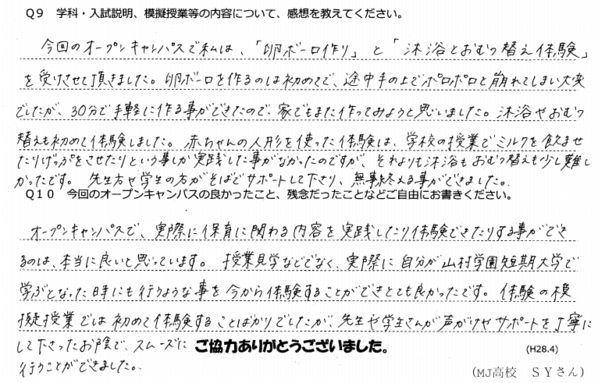 Q9 学科・入試説明、模擬授業等の内容について、感想を教えてください。
今回のオープンキャンパスで私は、「卵ボーロ作り」と「沐浴とおむつ替え体験」
を受けさせて頂きました。卵ボーロを作るのは初めてで、途中手の上でポロポロと崩れてしまい大変
でしたが、30分で手軽に作る事ができたので、家でもまた作ってみようと思いました。沐浴やおむつ
替えも初めて体験しました。赤ちゃんの人形を使った体験は、学校の授業でミルクを飲ませ
たりげっぷをさせたりという事しか実践した事がなかったのですが、それよりも沐浴もおむつ替えも少し難し
かったです。先生方や学生の方がそばでサポートして下さり、無事終える事ができました。
Q10 今回のオープンキャンパスの良かったこと、残念だったことなどご自由にお書きください。
オープンキャンパスで、実際に保育に関わる内容を実践したり体験できたりする事ができ
るのは、本当に良いと思っています。授業見学などでなく、実際に自分が山村学園短期大学で
学ぶとなった時にも行うような事を今から体験することができとても良かったです。体験の模
擬授業では初めて体験することばかりでしたが、先生や学生さんが声がけやサポートを丁寧に
して下さったお陰で、スムーズに ご協力ありがとうございました。 (H28.4)
行うことができました。 (MJ高校 SYさん)